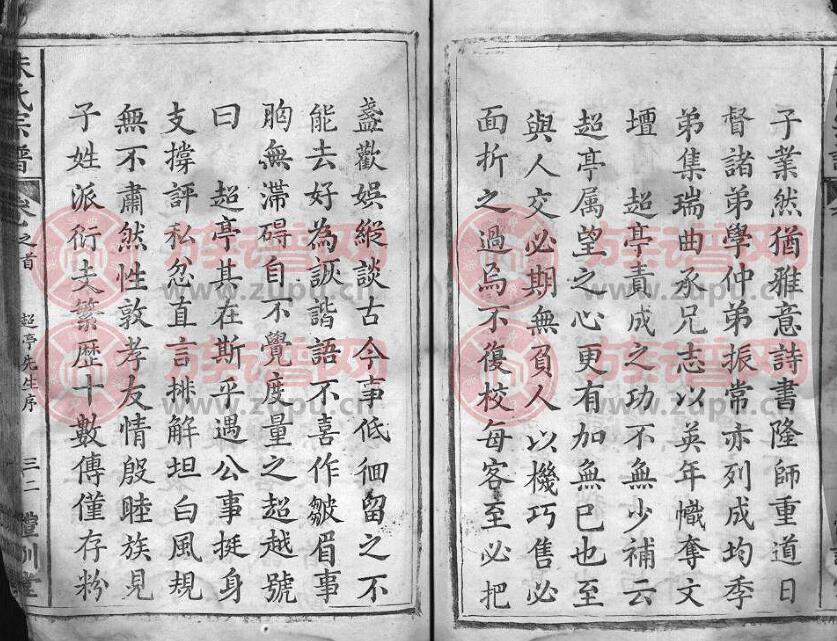 子業然猶雅意詩書隆師重道日
督諸弟學仲弟振常亦列成均季
弟集瑞曲承兄志以英年幟奪文
壇　超亭責成之功不無少補云
超亭属望之心更有加無已也至
與人交必期無負人以機巧售必
面折之過烏不復校每客至必把
盞歡娛縱談古今事低徊留之不
能去好為詼諧語不喜作皺眉事
胸無滯碍自不覺度量之超越號
曰　超亭其在斯乎遇公事挺身
支撐評私忿直言排解坦白風規
無不肅然性敦孝友情殷睦族見
子姓派衍支繁歷十數傳僅存粉
朱氏宗譜　卷之首　超亭先生序　三二
族谱网
www.zupu.cn
族谱网
www.zupu.cn
族谱网
www.zupu.cn
族谱网
www.zupu.cn